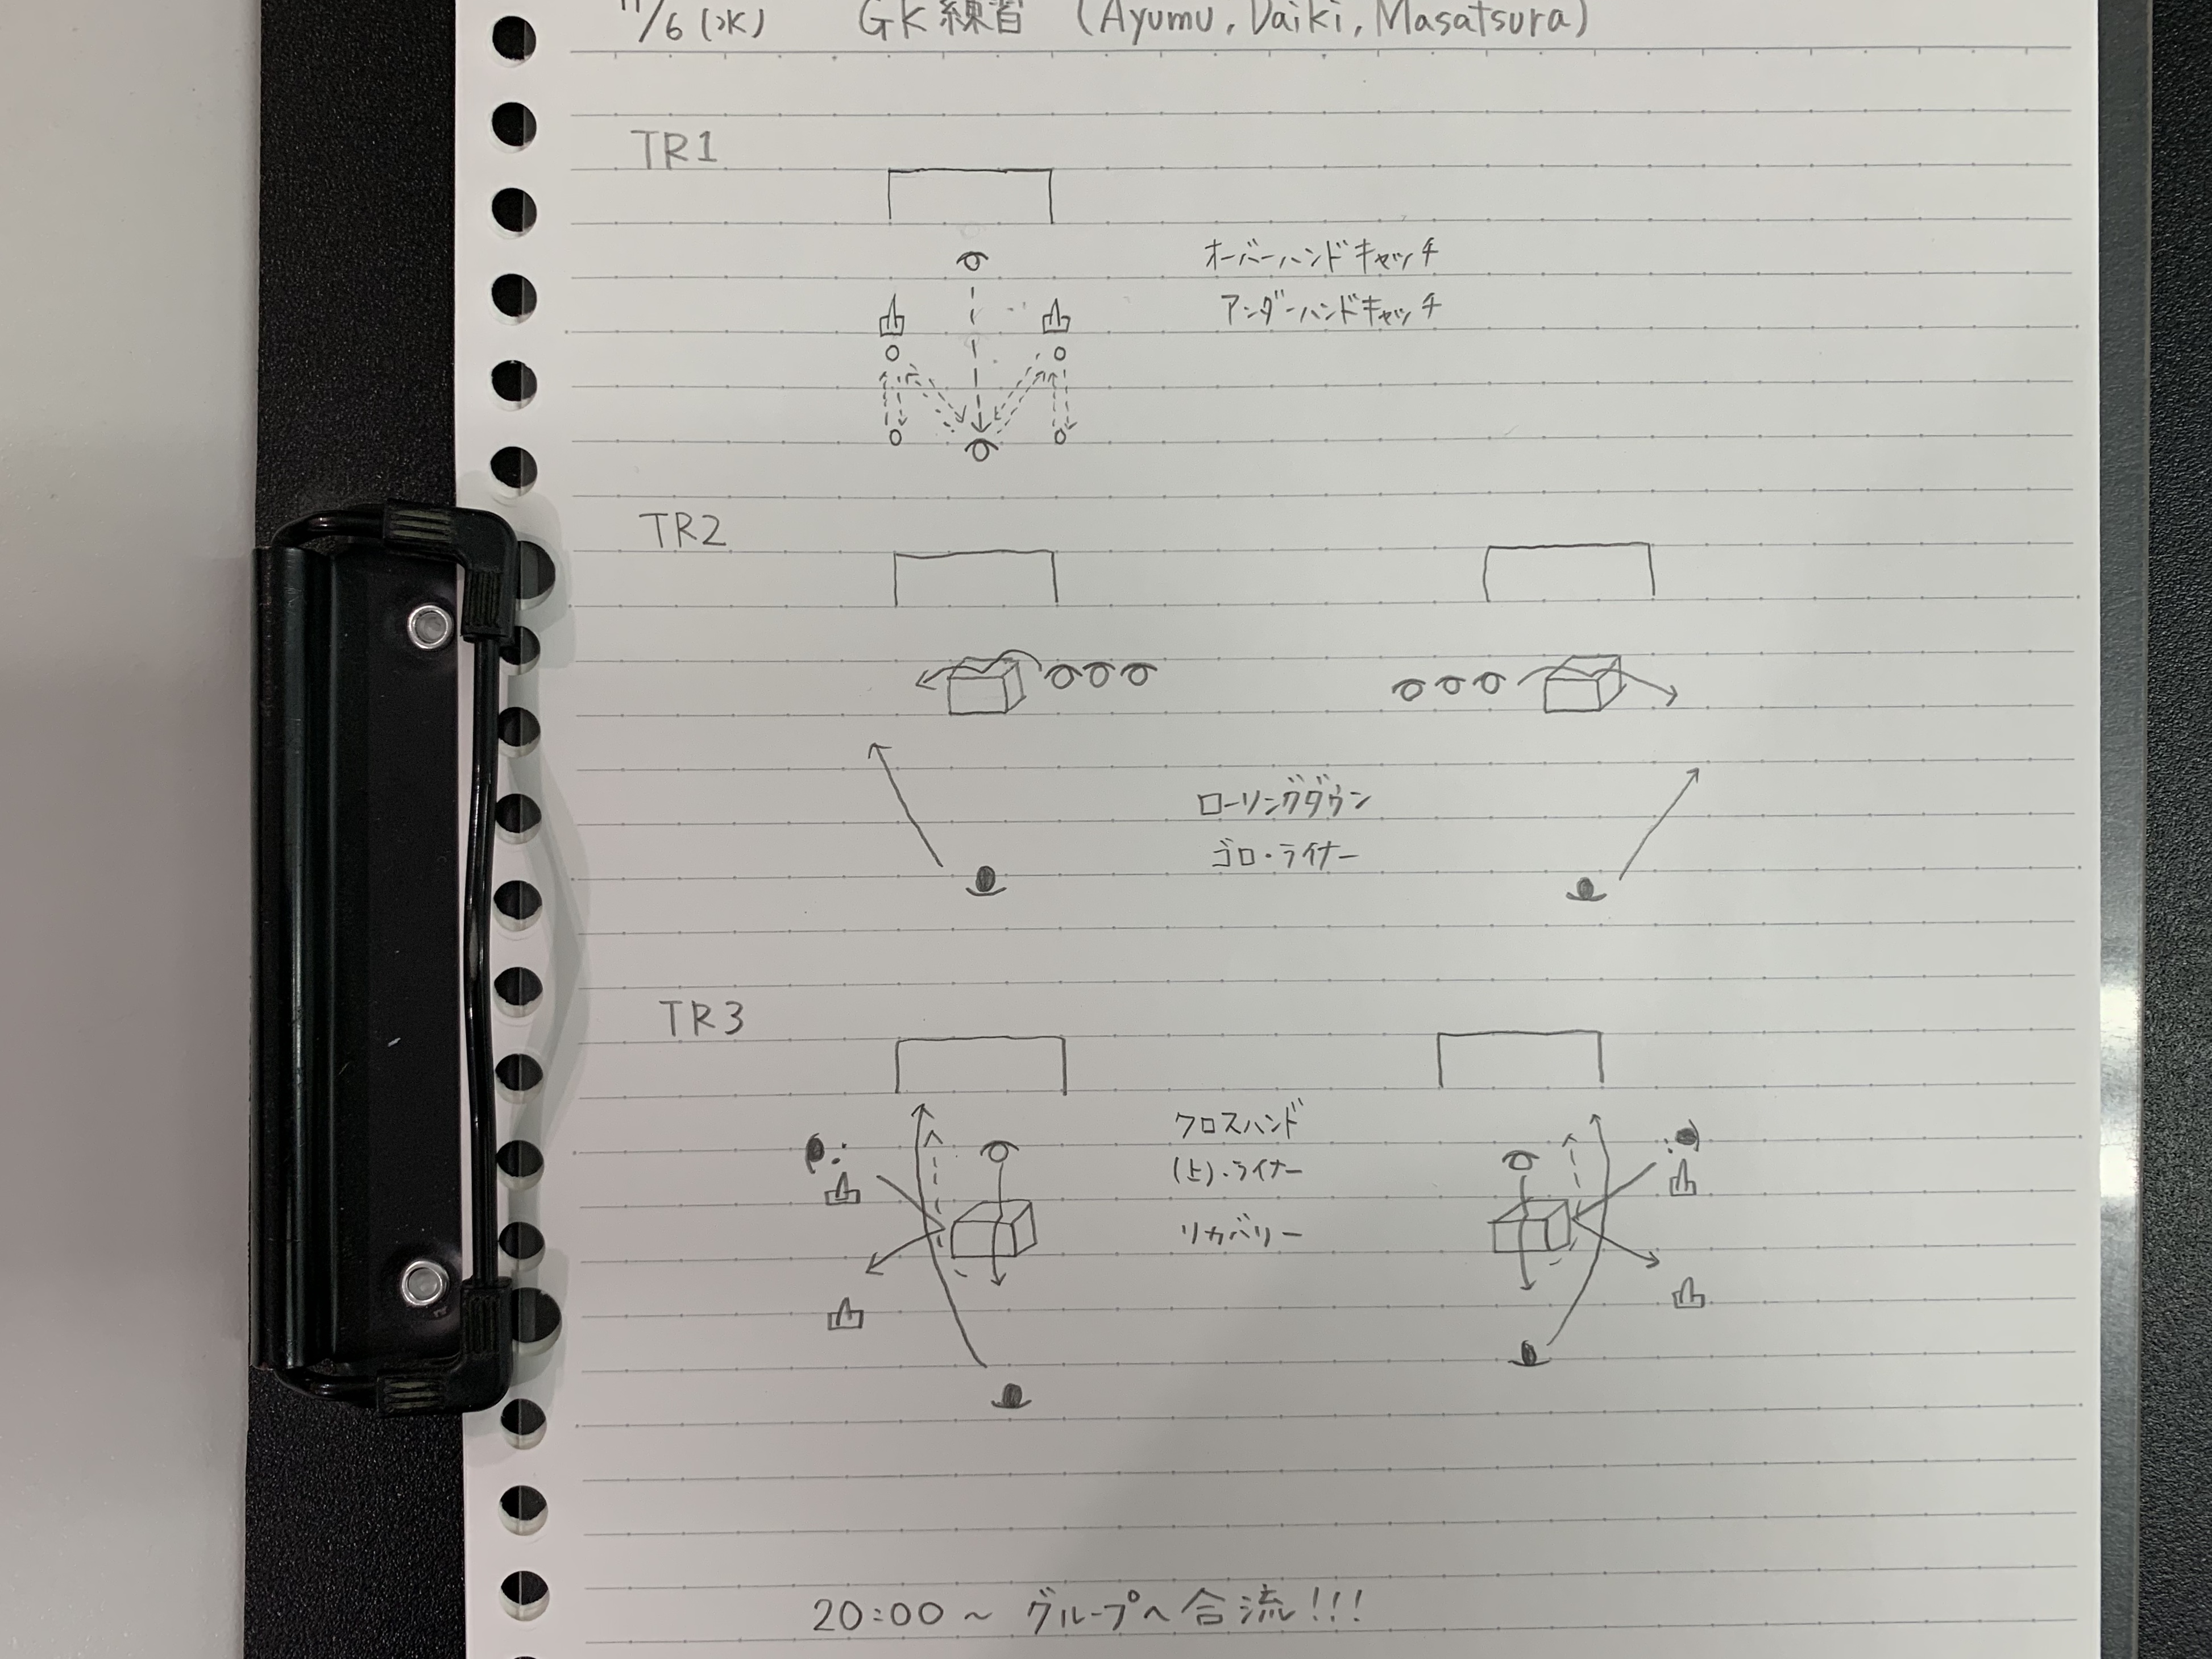 11/6(水) GK練習 (Ayumu, Daiki, Masatsura)
TR1
オーバーハンドキャッチ
アンダーハンドキャッチ
TR2
ローリングダウン
ゴロ・ライナー
TR3
クロスハンド
(上)・ライナー
リカバリー
20:00~ グループへ合流!!!